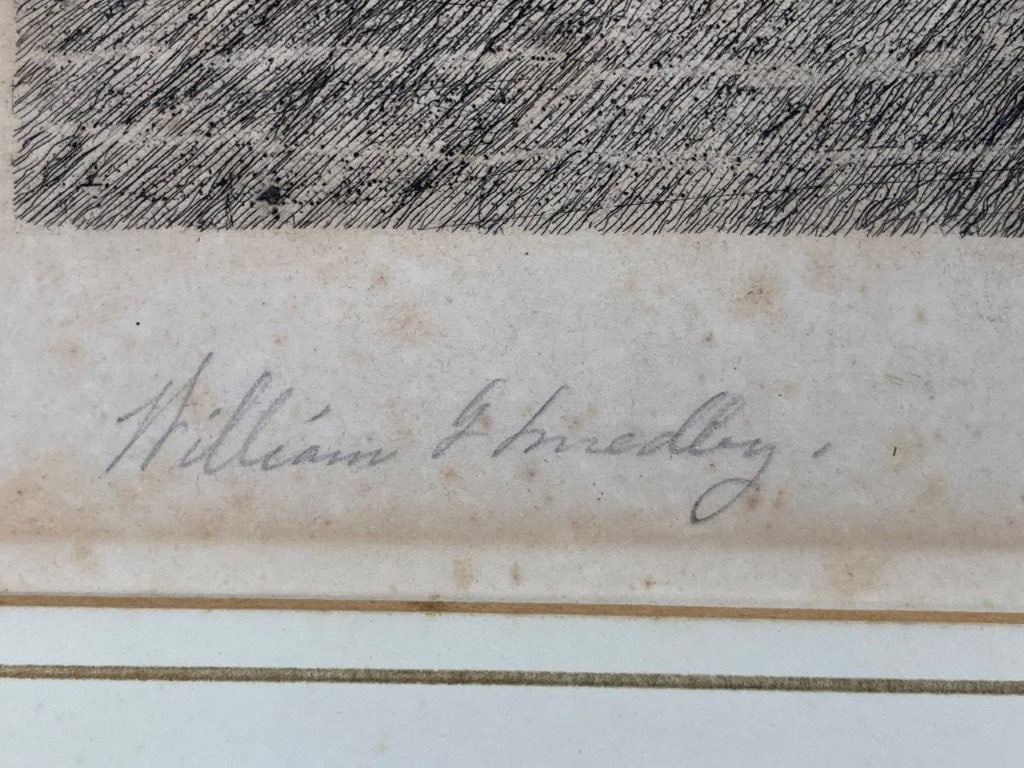 William Smedley.